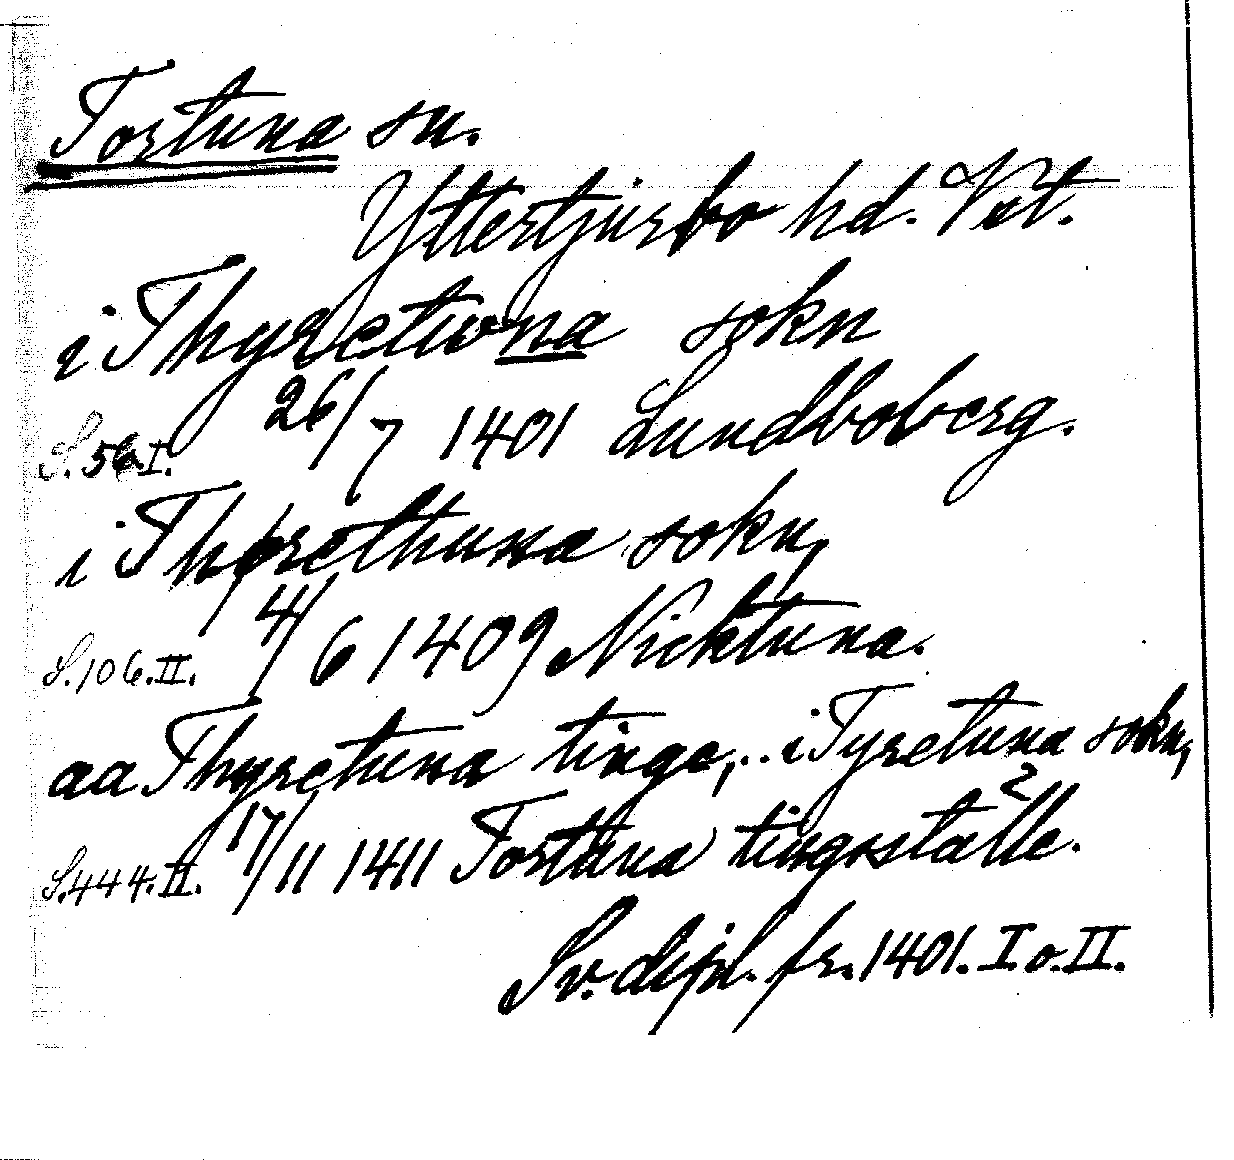 Tortuna sn.
Yttertjurbo hd. Vstm.
i Thyretuna sokn
S. 56 I. 26/7 1401 Lundboberg.
i Thorethuna sokn,
S. 106. II. 4/6 1409 Nicktuna.
aa Thyretuna tinge,... i Tyretuna sokn,
S. 444. II. 17/11 1411 Tortuna tingsställe.
Sv. dipl. fr. 1401. I o. II.